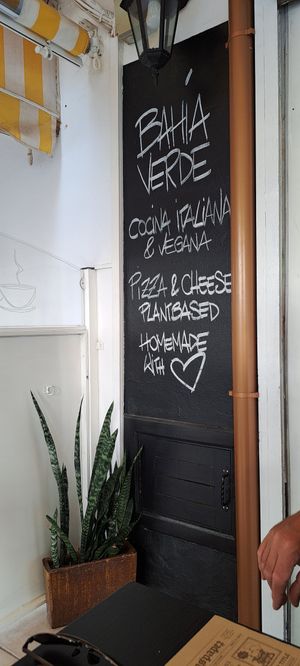 BAHÍA
VERDE
COCINA ITALIANA
& VEGANA
PIZZA & CHEESE
PLANTBASED
HOMEMADE
WITH ♡